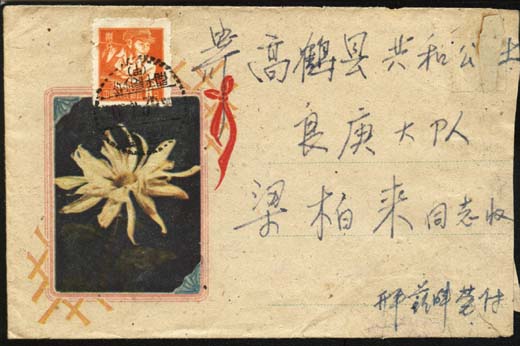 高鹤县共和公社
良庚大队
梁柏来同志收